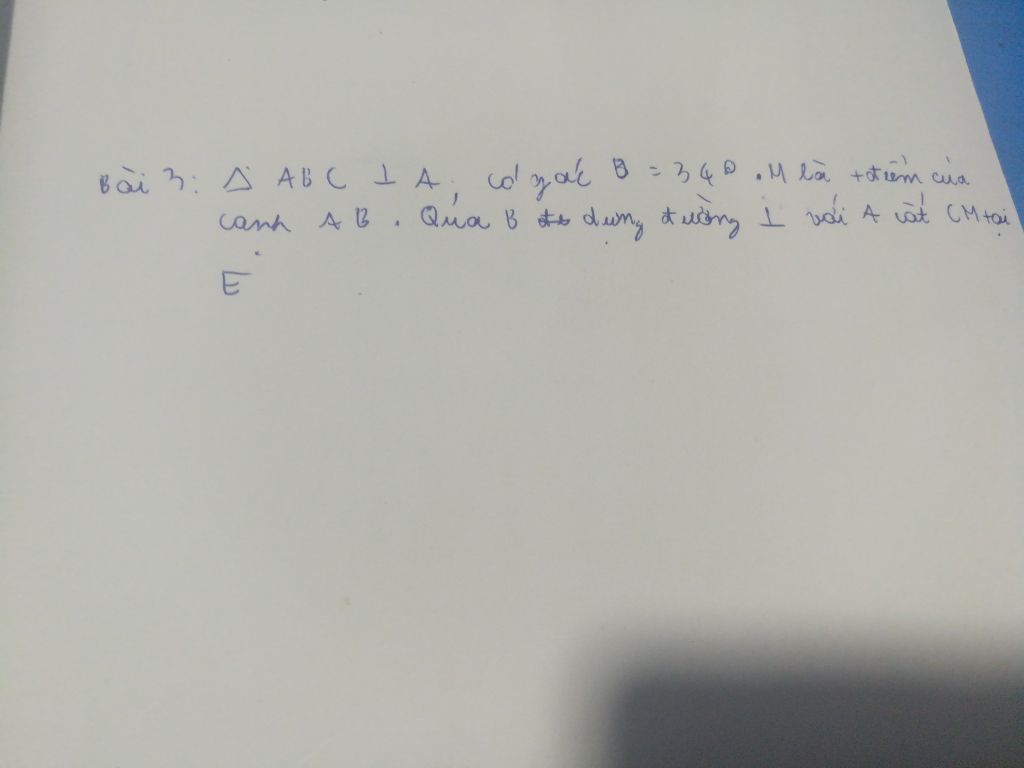 Bài 3: Δ ABC ⊥ A, có góc B = 34⁰. M là +điểm của
cạnh AB. Qua B dựng đường ⊥ với A cắt CM tại
E